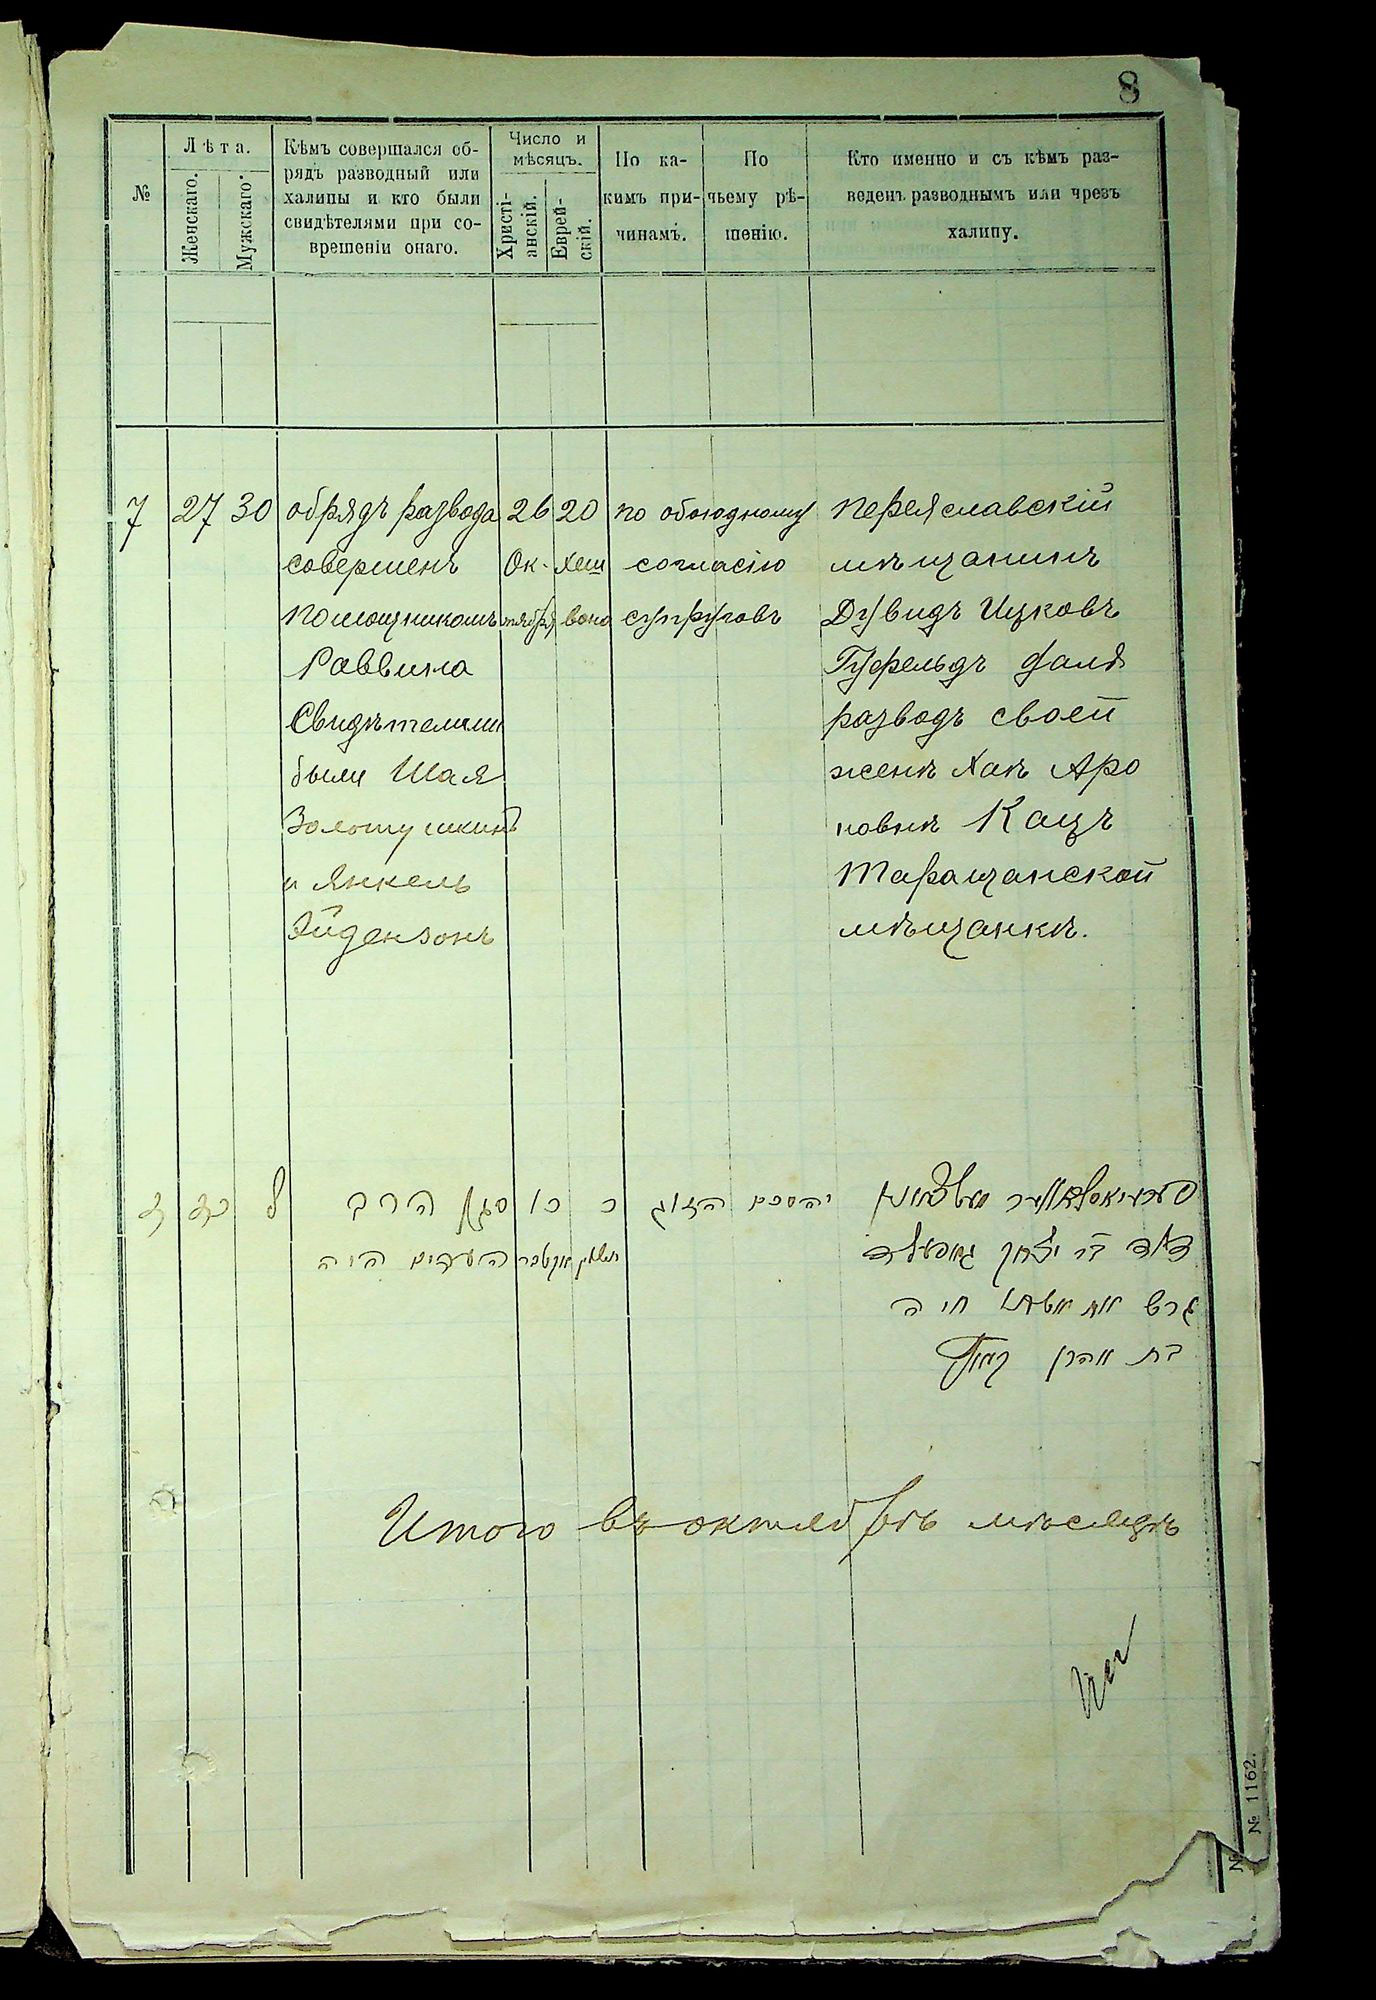 8
№
Лѣта.
Женскаго.
Мужскаго.
Кѣмъ совершался об-
рядъ разводный или
халипы и кто были
свидѣтелями при со-
врешеніи онаго.
Число и
мѣсяцъ.
Христі-
анскій.
Еврей-
скій.
По ка-
кимъ при-
чинамъ.
По
чьему рѣ-
шенію.
Кто именно и съ кѣмъ раз-
веденъ разводнымъ или чрезъ
халипу.
7
27
30
обрядъ развода
совершенъ
помощникомъ
Раввина
Свидѣтелями
были Шая
Золотушкинъ
и Янкель
Эйдензонъ
26
Ок-
тября
20
Хеш
вона
по обоюдному
согласію
супруговъ
Переяславскій
мѣщанинъ
Дувидъ Ицковъ
Гуфельдъ далъ
разводъ своей
женѣ Хаѣ Аро
новнѣ Кацъ
Таращанской
мѣщанкѣ.
ז
כז
ל
סגן הרב
העדים היה
כו
אקטבר
כ
יהסכם הזוג
דוד בר יצחק
גרש את אשתו חיה
בת אהרן
Итого въ октябрѣ мѣсяцѣ
№ 1162.
№